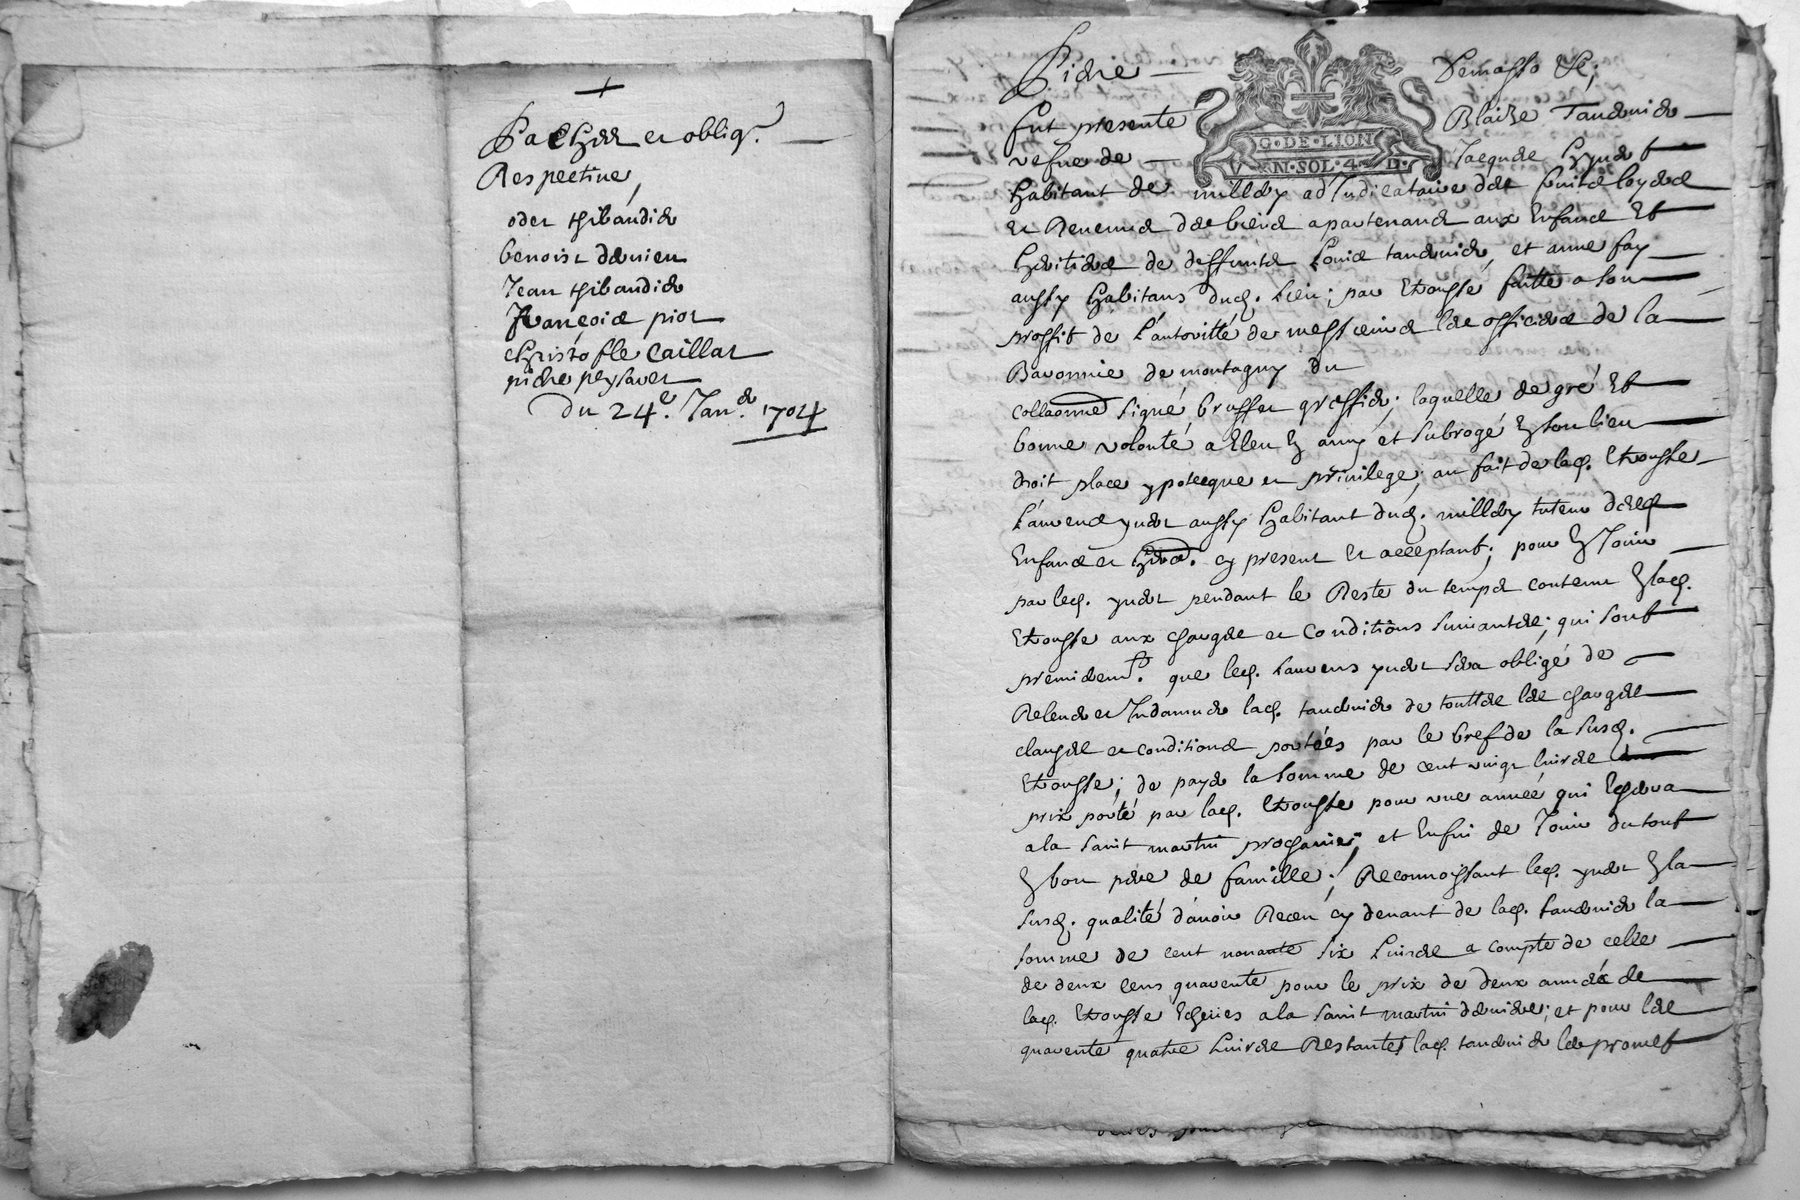 +
Pacher et obligᵒⁿ
Respective,
oder thibaudier
benoist dernieu
Jean thibaudier
François piot
christofle Caillat
pierre peysaret
du 24ᵉ. Janᵉʳ. 1704
Pierre
fut presente Blaize Tauernier
vefue de Jacques yuert
habitant de millery adJudicataire des fruits loyers
et Reuenus des biens apartenans aux Enfans Et
heritiers de deffunts Louis tauernier, et anne fay
aussy habitans dud. lieu; par Etrousse faitte a son
proffit de L'autorité de messieurs les officiers de la
Baronnie de montagny du
collaonné signé, bruffer greffier; laquelle de gré Et
bonne volonté a Eleu En amy et subrogé En son lieu
droit place ypotecque et priuilege, au fait de lad. Etrousse
Laurens yuert aussy habitant dud. millery tuteur desd
Enfans et her. cy present et acceptant; pour En Jouir
par led. yuert pendant le Reste du temps contenu En lad.
Etrousse aux charges et Conditions suiuantes; qui sont
premierem. que led. Laurens yuert sera obligé de
Releuer et Indamner lad. tauernier de touttes les charges
clauses et conditions portées par le bref de la susd.
Etrousse; de payer la somme de cent vingt liures
prix porté par lad. Etrousse pour vne année qui Echerra
a la saint martin prochaine, et Enfin de Jouir du tout
En bon pere de famille; Reconnoissant led. yuert En la
susd. qualité d'auoir Receu cy deuant de lad. tauernier la
somme de cent nonante six Liures a compte de celle
de deux cens quarente pour le prix de deux années de
lad. Etrousse Echeües a la saint martin derniere; et pour les
quarente quatre Liures Restantes lad. tauernier les promet
G·DE·LION
N·SOL·4·D·